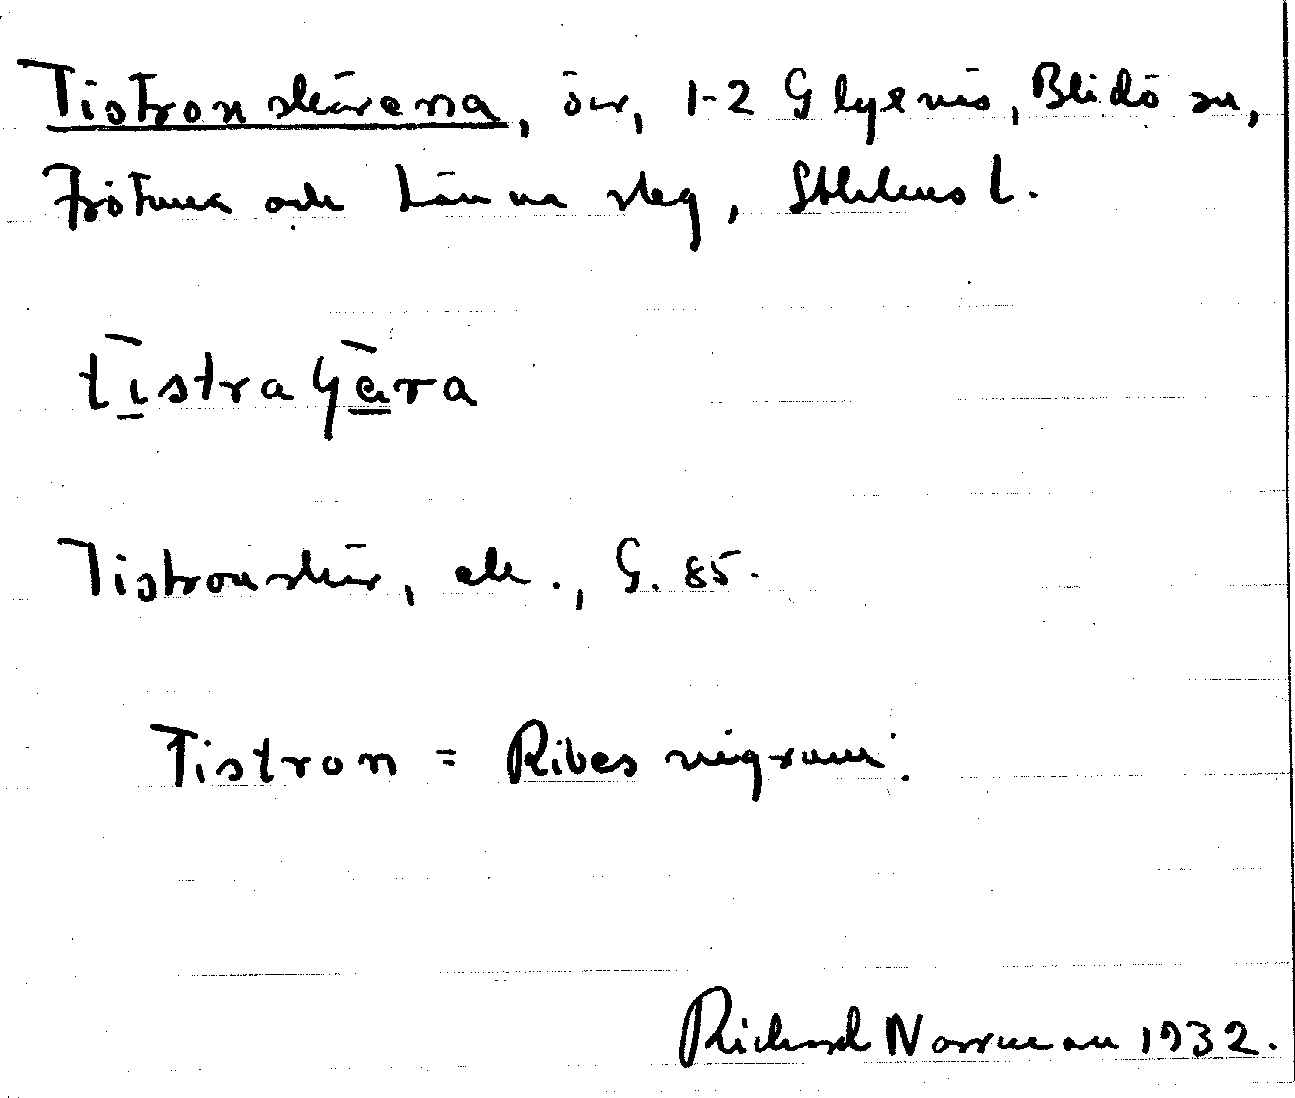 Tistronskären, öar, 1-2 Glyxnäs, Blidö sn,
Frötuna och Länna skg, Sthlms l.
tīstraɧǟra
Tistronskär, ek., G. 85.
Tistron = Ribes nigrum.
Richard Norrman 1932.